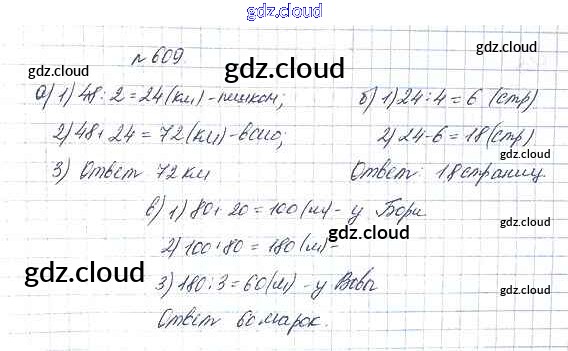 gdz.cloud
№ 609.
gdz.cloud
gdz.cloud
а) 1) 48 : 2 = 24 (км) - пешком;
б) 1) 24 : 4 = 6 (стр)
2) 48 + 24 = 72 (км) - всего;
2) 24 - 6 = 18 (стр)
gdz.cloud
gdz.cloud
3) Ответ 72 км
Ответ: 18 страниц
в) 1) 80 + 20 = 100 (м) - у Бори
gdz.cloud
2) 100 + 80 = 180 (м) -
gdz.cloud
3) 180 : 3 = 60 (м) - у Вовы
gdz.cloud
Ответ 60 марок.